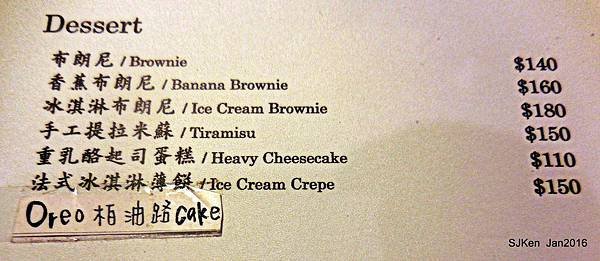 Dessert
布朗尼 / Brownie $140
香蕉布朗尼 / Banana Brownie $160
冰淇淋布朗尼 / Ice Cream Brownie $180
手工提拉米蘇 / Tiramisu $150
重乳酪起司蛋糕 / Heavy Cheesecake $110
法式冰淇淋薄餅 / Ice Cream Crepe $150
Oreo 柏油路 Cake
SJKen Jan2016